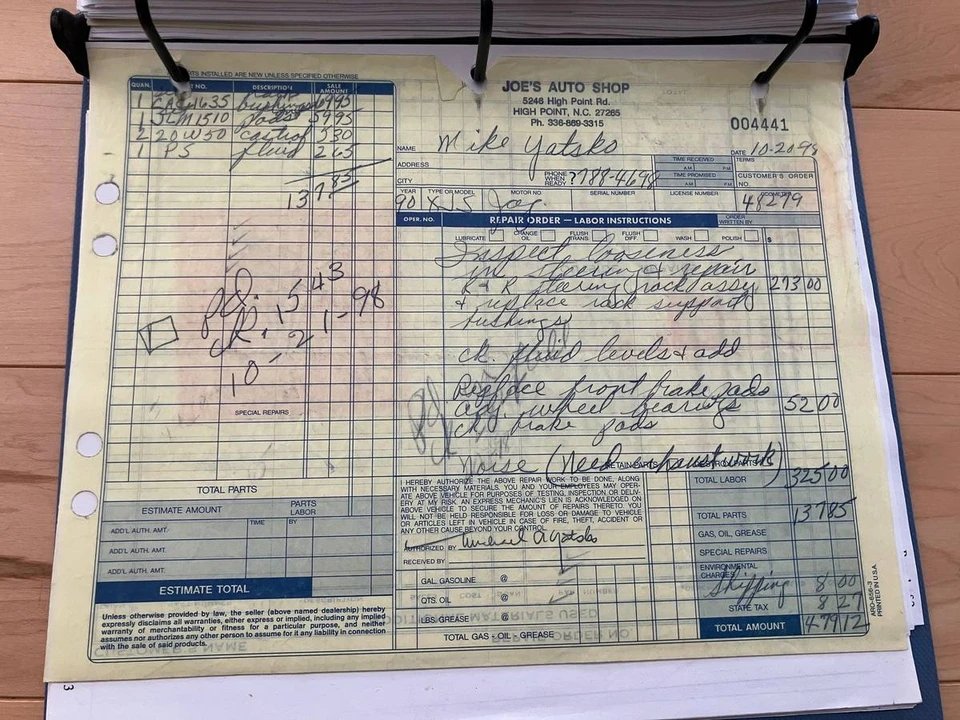 PARTS INSTALLED ARE NEW UNLESS SPECIFIED OTHERWISE
QUAN. PART NO. DESCRIPTION SALE AMOUNT
1 bushings 6995
1 1510 pads 5995
2 20W50 Castrol 530
1 PS fluid 265
13785
Pd.
CK. 1543
10-21-98
SPECIAL REPAIRS
TOTAL PARTS
ESTIMATE AMOUNT PARTS LABOR
ADD'L AUTH. AMT. TIME BY
ADD'L AUTH. AMT.
ADD'L AUTH. AMT.
ESTIMATE TOTAL
Unless otherwise provided by law, the seller (above named dealership) hereby
expressly disclaims all warranties, either express or implied, including any implied
warranty of merchantability or fitness for a particular purpose, and neither
assumes nor authorizes any other person to assume for it any liability in connection
with the sale of said products.
JOE'S AUTO SHOP
5248 High Point Rd.
HIGH POINT, N.C. 27265
Ph. 336-869-3315
004441
NAME Mike Yatsko DATE 10-20-98
ADDRESS TIME RECEIVED A.M. P.M. TERMS
CITY PHONE WHEN READY 788-4698 TIME PROMISED A.M. P.M. CUSTOMER'S ORDER NO.
YEAR TYPE OR MODEL MOTOR NO. SERIAL NUMBER LICENSE NUMBER ODOMETER
90 XJS Jag. 48279
OPER. NO. REPAIR ORDER — LABOR INSTRUCTIONS ORDER WRITTEN BY
LUBRICATE CHANGE OIL FLUSH TRANS. FLUSH DIFF. WASH POLISH $
Inspect looseness
in steering & repair
R & R steering rack assy 273 00
& replace rack support
bushings
ck. fluid levels & add
Replace front brake pads
adj. wheel bearings 52 00
ck. brake pads
Noise (Need exhaust work)
RETAIN PARTS DESTROY PARTS
I HEREBY AUTHORIZE THE ABOVE REPAIR WORK TO BE DONE, ALONG
WITH NECESSARY MATERIALS. YOU AND YOUR EMPLOYEES MAY OPER-
ATE ABOVE VEHICLE FOR PURPOSES OF TESTING, INSPECTION OR DELIV-
ERY AT MY RISK. AN EXPRESS MECHANIC'S LIEN IS ACKNOWLEDGED ON
ABOVE VEHICLE TO SECURE THE AMOUNT OF REPAIRS THERETO. YOU
WILL NOT BE HELD RESPONSIBLE FOR LOSS OR DAMAGE TO VEHICLE
OR ARTICLES LEFT IN VEHICLE IN CASE OF FIRE, THEFT, ACCIDENT OR
ANY OTHER CAUSE BEYOND YOUR CONTROL.
AUTHORIZED BY Michael A Yatsko
RECEIVED BY
GAL. GASOLINE @
QTS. OIL @
LBS. GREASE @
TOTAL GAS - OIL - GREASE
TOTAL LABOR 325 00
TOTAL PARTS 137 85
GAS, OIL, GREASE
SPECIAL REPAIRS
ENVIRONMENTAL CHARGES
Shipping 8 00
STATE TAX 8 27
TOTAL AMOUNT 479 12
ARO-656-3
PRINTED IN U.S.A.